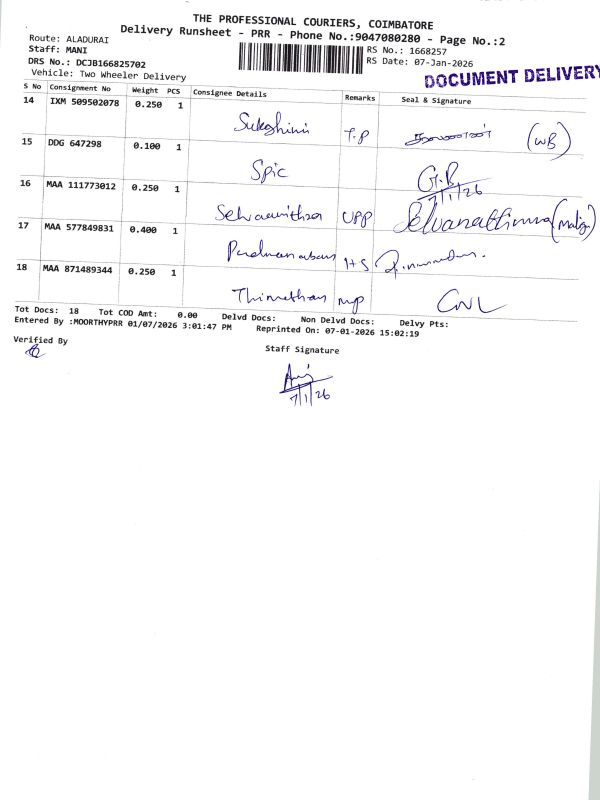 THE PROFESSIONAL COURIERS, COIMBATORE
Delivery Runsheet - PRR - Phone No.:9047080280 - Page No.:2
Route: ALADURAI
Staff: MANI
DRS No.: DCJB166825702
Vehicle: Two Wheeler Delivery
RS No.: 1668257
RS Date: 07-Jan-2026
DOCUMENT DELIVERY
S No Consignment No Weight PCS Consignee Details Remarks Seal & Signature
14 IXM 509502078 0.250 1
Sukashini T.P (WB)
15 DDG 647298 0.100 1
Spic G.R
7/1/26
16 MAA 111773012 0.250 1
UPP
17 MAA 577849831 0.400 1
HS
18 MAA 871489344 0.250 1
Thimothan mp
Tot Docs: 18 Tot COD Amt: 0.00 Delvd Docs: Non Delvd Docs: Delvy Pts:
Entered By :MOORTHYPRR 01/07/2026 3:01:47 PM Reprinted On: 07-01-2026 15:02:19
Verified By
Staff Signature
7/1/26